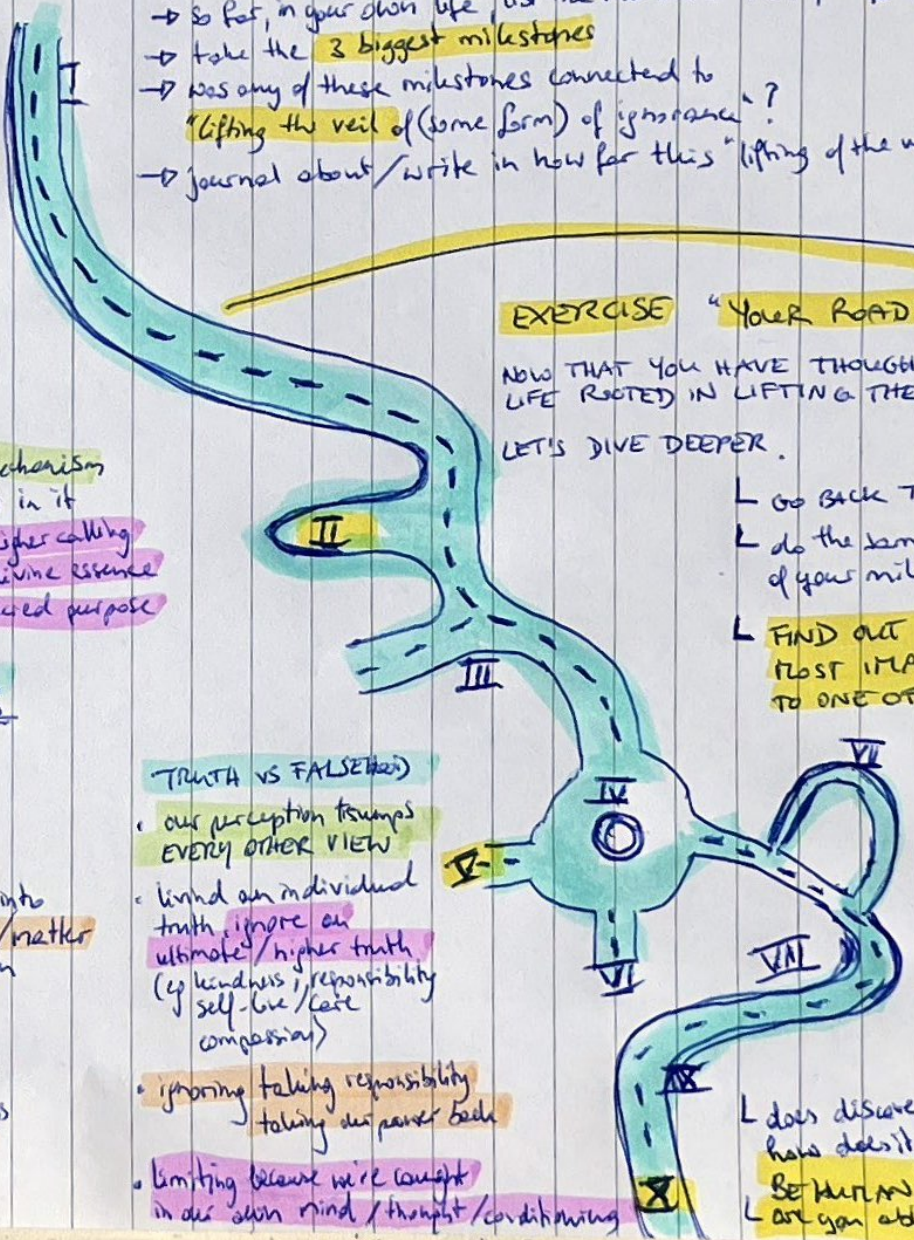 → so far, in your own life,
→ take the 3 biggest milestones
→ was any of these milestones connected to
"lifting the veil of (some form) of ignorance"?
→ journal about/write in how far this "lifting of the
I
EXERCISE "YOUR ROAD
NOW THAT YOU HAVE THOUGH
LIFE ROOTED IN LIFTING THE
LET'S DIVE DEEPER.
GO BACK T
do the sam
of your mil
FIND OUT
MOST IMPA
TO ONE OF
chanism
in it
igher calling
ivine essence
cred purpose
II
III
IV
V
VI
VII
VIII
IX
X
TRUTH VS FALSEHOOD
• our perception trumps
EVERY OTHER VIEW
• living an individual
truth, ignore an
ultimate/higher truth
(eg kindness, responsibility
self-love/care
compassion)
• ignoring taking responsibility
taking our power back
• limiting because we're caught
in our own mind/thought/conditioning
into
/matter
does discove
how does it
BE HUMAN
are you ab